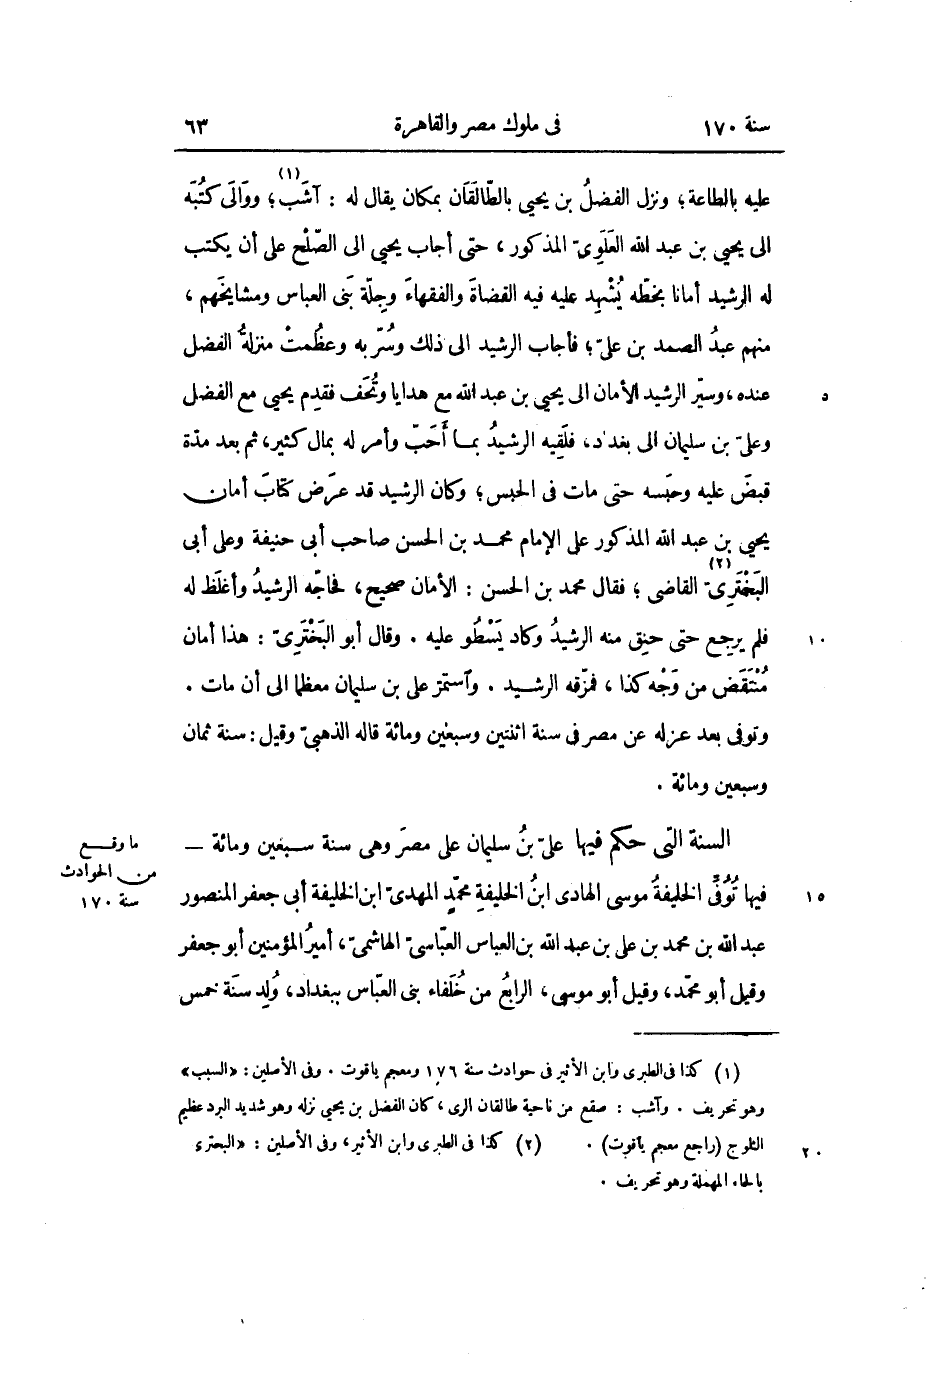 سنة ١٧٠ فى ملوك مصر والقاهرة ٦٣
عليه بالطاعة؛ ونزل الفضلُ بن يحيى بالطّالَقَان بمكان يقال له : آشَب(١)؛ ووَالَى كُتُبَه
الى يحيى بن عبد الله العَلَوِىّ المذكور، حتى أجاب يحيى الى الصّلْح على أن يكتب
له الرشيد أمانا بخطّه يُشْهِد عليه فيه القضاةَ والفقهاءَ وجِلّة بَنى العباس ومشايخَهم،
منهم عبدُ الصمد بن علىّ؛ فأجاب الرشيد الى ذلك وسُرّ به وعظُمتْ منزلةُ الفضل
عنده، وسيّر الرشيد الأمان الى يحيى بن عبد الله مع هدايا وتُحَف فقدِم يحيى مع الفضل ٥
وعلىّ بن سليمان الى بغداد، فلَقِيه الرشيدُ بما أَحَبّ وأمر له بمال كثير، ثم بعد مدّة
قبضَ عليه وحبَسه حتى مات فى الحبس؛ وكان الرشيد قد عرَض كتابَ أمان
يحيى بن عبد الله المذكور على الإمام محمد بن الحسن صاحب أبى حنيفة وعلى أبى
البَخْتَرِىّ(٢) القاضى؛ فقال محمد بن الحسن : الأمان صحيح، فحاجّه الرشيدُ وأغلَظ له
فلم يرجِع حتى حنِق منه الرشيدُ وكاد يَسْطُو عليه . وقال أبو البَخْتَرِىّ : هذا أمان ١٠
مُنْتَقَض من وَجْه كذا، فمزّقه الرشيد . وآستمرّ على بن سليمان معظما الى أن مات .
وتوفى بعد عزله عن مصر فى سنة اثنتين وسبعين ومائة قاله الذهبىّ وقيل : سنة ثمان
وسبعين ومائة .
السنة التى حكم فيها علىّ بنُ سليمان على مصرَ وهى سنة سبعين ومائة –
ما وقع
من الحوادث
سنة ١٧٠
فيها تُوُفِّىَ الخليفةُ موسى الهادى ابنُ الخليفةِ محمّدٍ المهدىّ ابن الخليفة أبى جعفر المنصور ١٥
عبد الله بن محمد بن على بن عبد الله بن العباس العبّاسىّ الهاشمىّ، أميرُ المؤمنين أبو جعفر
وقيل أبو محمّد، وقيل أبو موسى، الرابعُ من خُلَفاء بنى العبّاس ببغداد، وُلِد سنَة خمس
(١) كذا فى الطبرى وابن الأثير فى حوادث سنة ١٧٦ ومعجم ياقوت . وفى الأصلين : «السبب»
وهو تحريف . وآشب : صقع من ناحية طالقان الرى، كان الفضل بن يحيى نزله وهو شديد البرد عظيم
الثلوج (راجع معجم ياقوت) . (٢) كذا فى الطبرى وابن الأثير، وفى الأصلين : «البحترى ٢٠
بالحاء المهملة وهو تحريف .